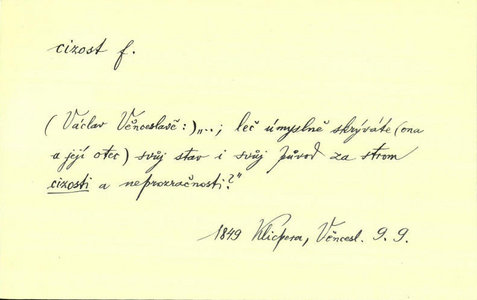 cizost f.
(Václav Věnceslavě:) „...; leč úmyslně skrýváte (ona
a její otec) svůj stav i svůj původ za strom
cizosti a neprozračnosti?"
1849 Klicpera, Věncesl. 9. 9.